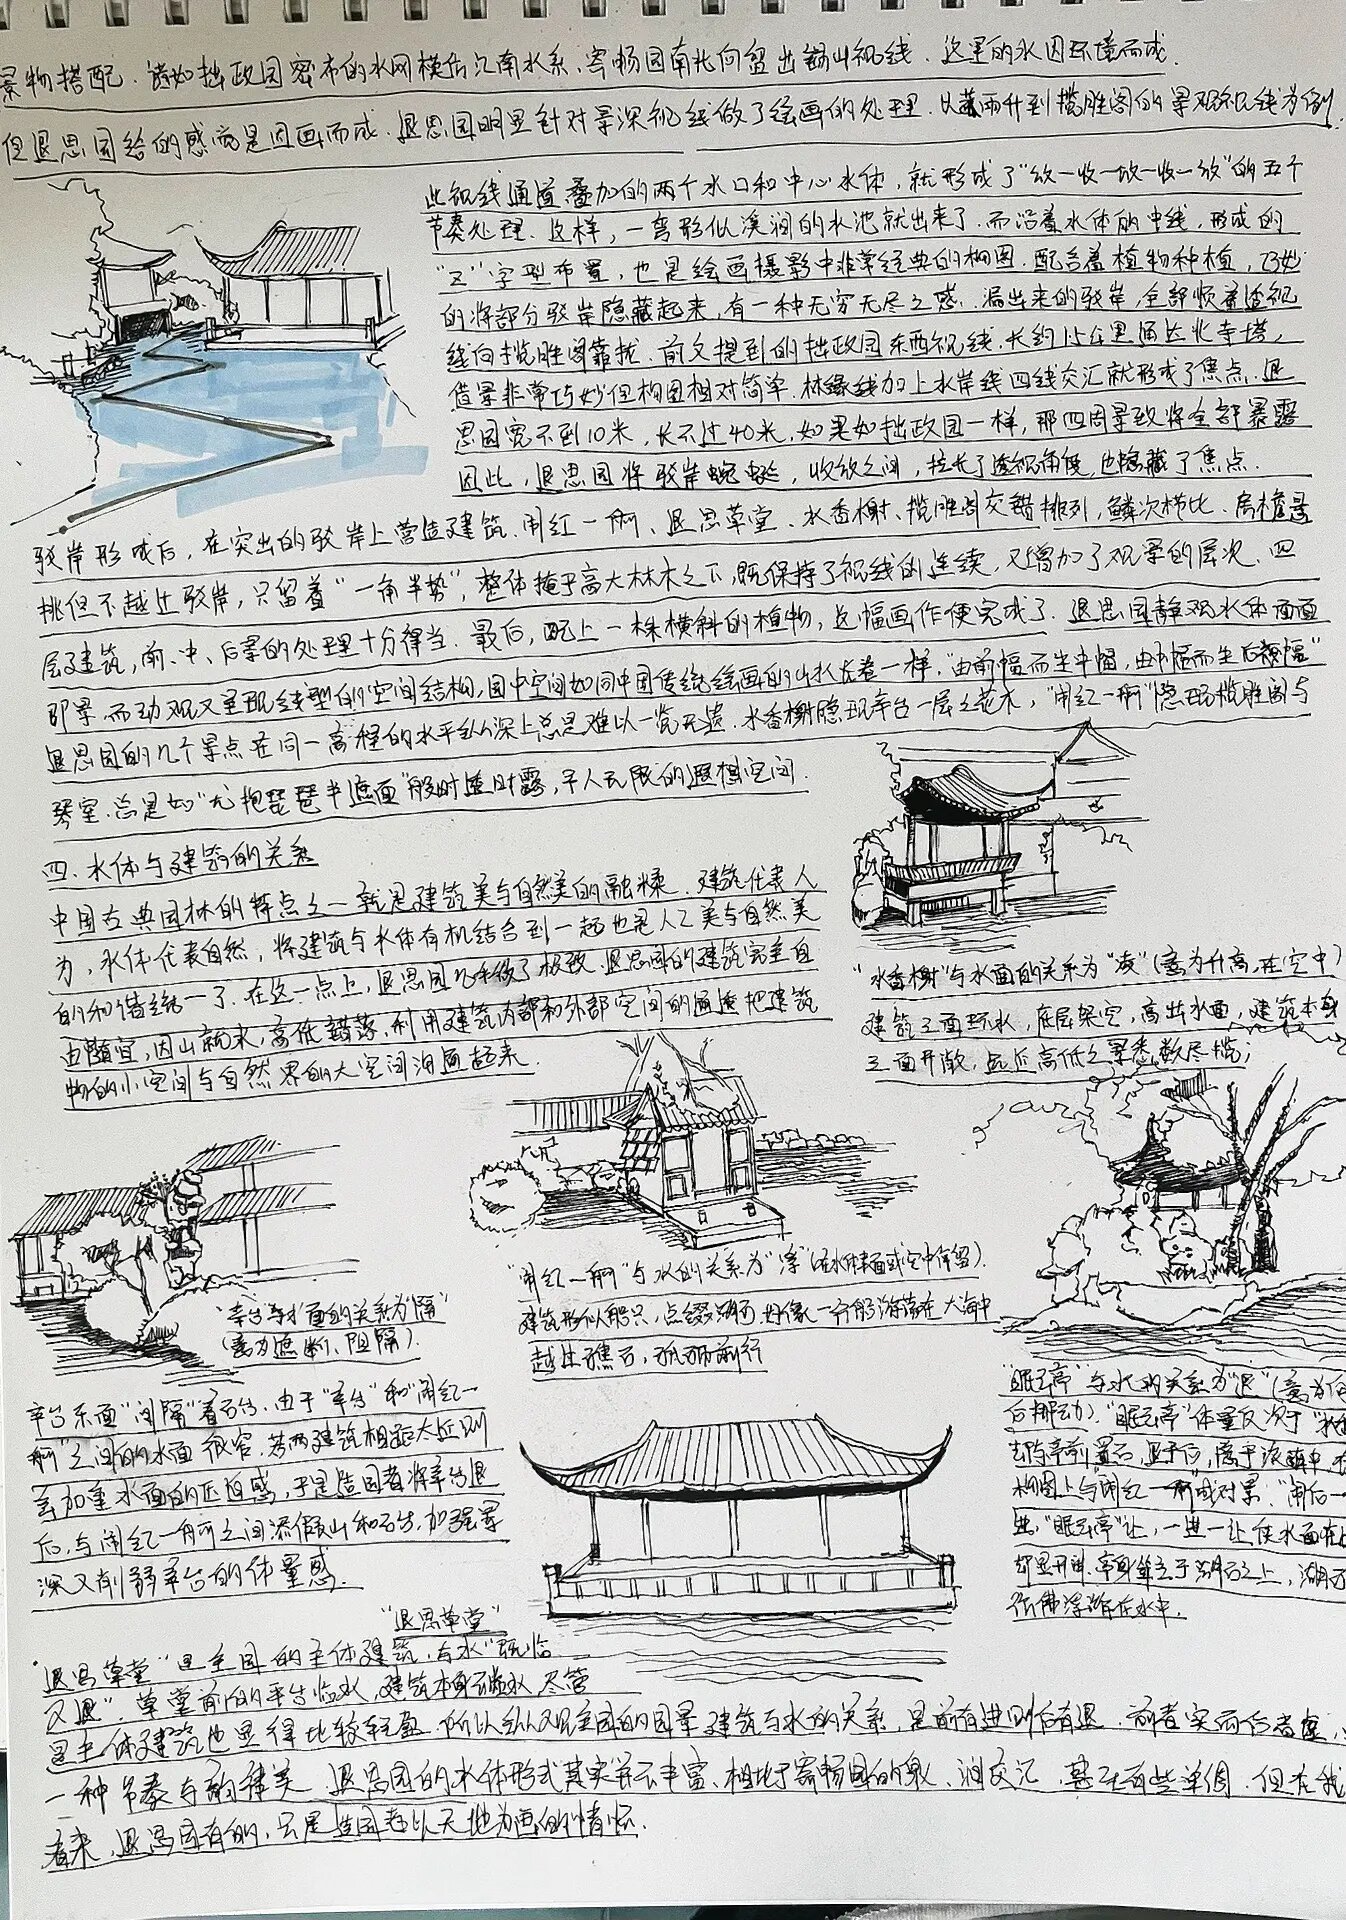 景物搭配.诸如拙政园密布的水网模仿江南水系、寄畅园南北向留出锡山视线.这里的水因环境而成.
但退思园给的感觉是因画而成.退思园明显针对景深视线做了绘画的处理.以菰雨升到揽胜阁的景观视线为例.
此视线通道叠加的两个水口和中心水体,就形成了"放一收一放一收一放"的五个
节奏处理.这样,一弯形似溪涧的水池就出来了.而沿着水体的中线,形成的
"Z"字型布置,也是绘画摄影中非常经典的构图.配合着植物种植,巧妙
的将部分驳岸隐藏起来,有一种无穷无尽之感.漏出来的驳岸,全部顺着透视
线向揽胜阁靠拢.前文提到的拙政园东西视线.长约1.5公里通达北寺塔,
借景非常巧妙但构图相对简单.林缘线加上水岸线四线交汇就形成了焦点.退
思园宽不到10米,长不过40米,如果如拙政园一样,那四周景致将全部暴露
因此,退思园将驳岸蜿蜒,收放之间,拉长了透视角度,也隐藏了焦点.
驳岸形成后,在突出的驳岸上营造建筑.闹红一舸、退思草堂、水香榭、揽胜阁交错排列,鳞次栉比.房檐悬
挑但不越过驳岸,只留着"一角半势",整体掩于高大林木之下,既保持了视线的连续,又增加了观景的层次.四
层建筑,前、中、后景的处理十分得当.最后,配上一株横斜的植物,这幅画作便完成了.退思园静观水体面面
即景.而动观又呈现线型的空间结构,园中空间如同中国传统绘画的山水长卷一样."由前幅而生中幅,由中幅而生后幅"
退思园的几个景点在同一高程的水平纵深上总是难以一览无遗.水香榭隐现辛台一层之花木,"闹红一舸"隐现揽胜阁与
琴室.总是如"尤抱琵琶半遮面"般时透时露,予人无限的遐想空间.
四.水体与建筑的关系
中国古典园林的特点之一就是建筑美与自然美的融糅.建筑代表人
为,水体代表自然,将建筑与水体有机结合到一起也是人工美与自然美
的和谐统一了.在这一点上,退思园几乎做了极致.退思园的建筑完全自
由随宜,因山就水,高低错落,利用建筑内部和外部空间的通透把建筑
物的小空间与自然界的大空间沟通起来.
"水香榭"与水面的关系为"凌"(意为升高,在空中)
建筑三面环水,底层架空,高出水面,建筑本身
三面开敞,远近高低之景悉数尽揽;
"辛台与水面的关系为"隔"
(意为遮断、阻隔).
"闹红一舸"与水的关系为"浮"(在水体表面或空中停留).
建筑形似船只,点缀湖石好像一帘船游荡在大海中
越过礁石,孤帆前行
辛台东面"间隔"着石台,由于"辛台"和"闹红一
舸"之间的水面很窄.若两建筑相距太近则
会加重水面的压迫感,于是造园者将辛台退
后,与闹红一舸之间添假山和石台,加强景
深又削弱辛台的体量感.
"眠云亭"与水的关系为"退"(意为向
后挪动)."眠云亭"体量仅次于"水
亭前置石,
构图上与"闹红一舸"成对景."闹红一
进,"眠云亭"让,一进一让使水面在
却显开阔.亭身耸立于湖石之上,湖石
仿佛浮游在水中.
"退思草堂"
"退思草堂"是全园的主体建筑,与水"既临
又退".草堂前的平台临水,建筑本身不临水,尽管
是主体建筑也显得比较轻盈.所以纵观全园的园景建筑与水的关系,是前有进则后有退.前者实而后者虚,
一种节奏与韵律美.退思园的水体形式其实并不丰富,相比于寄畅园的泉、涧交汇,甚至有些单调.但在我
看来,退思园有的,只是造园者以天地为画的情怀.